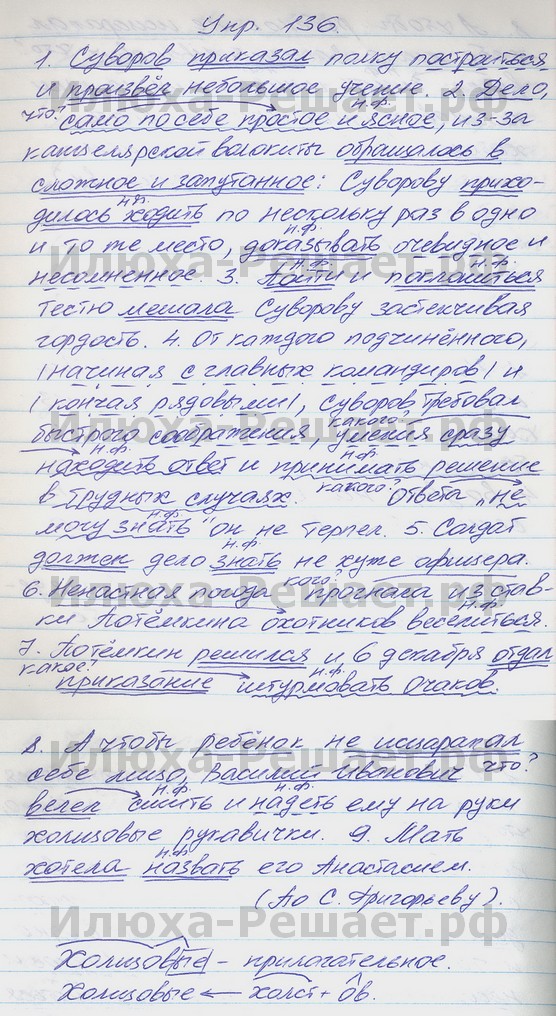 Упр. 136.
1. Суворов приказал полку построиться
и произвёл небольшое учение. 2. Дело,
что? н.ф.
само по себе простое и ясное, из-за
канцелярской волокиты обращалось в
сложное и запутанное: Суворову прихо-
н.ф.
дилось ходить по нескольку раз в одно
н.ф.
и то же место, доказывать очевидное и
н.ф. н.ф.
несомненное. 3. Пойти и поклониться
тестю мешала Суворову застенчивая
гордость. 4. От каждого подчинённого,
|начиная с главных командиров| и
|кончая рядовыми|, Суворов требовал
какого?
быстрого соображения, умения сразу
н.ф. н.ф.
находить ответ и принимать решение
какого?
в трудных случаях. Ответа „не
н.ф.
могу знать" он не терпел. 5. Солдат
н.ф.
должен дело знать не хуже офицера.
кого?
6. Ненастная погода прогнала из став-
н.ф.
ки Потёмкина охотников веселиться.
7. Потёмкин решился и 6 декабря отдал
какое? н.ф.
приказание штурмовать Очаков.
8. А чтобы ребёнок не исцарапал
себе лицо, Василий Иванович что?
н.ф. н.ф.
велел сшить и надеть ему на руки
холщовые рукавички. 9. Мать
н.ф.
хотела назвать его Анастасием.
(По С. Григорьеву).
Холщовые – прилагательное.
Холщовые ← холст + ов.
Илюха-Решает.рф
Илюха-Решает.рф
Илюха-Решает.рф
Илюха-Решает.рф
Илюха-Решает.рф
Илюха-Решает.рф
Илюха-Решает.рф